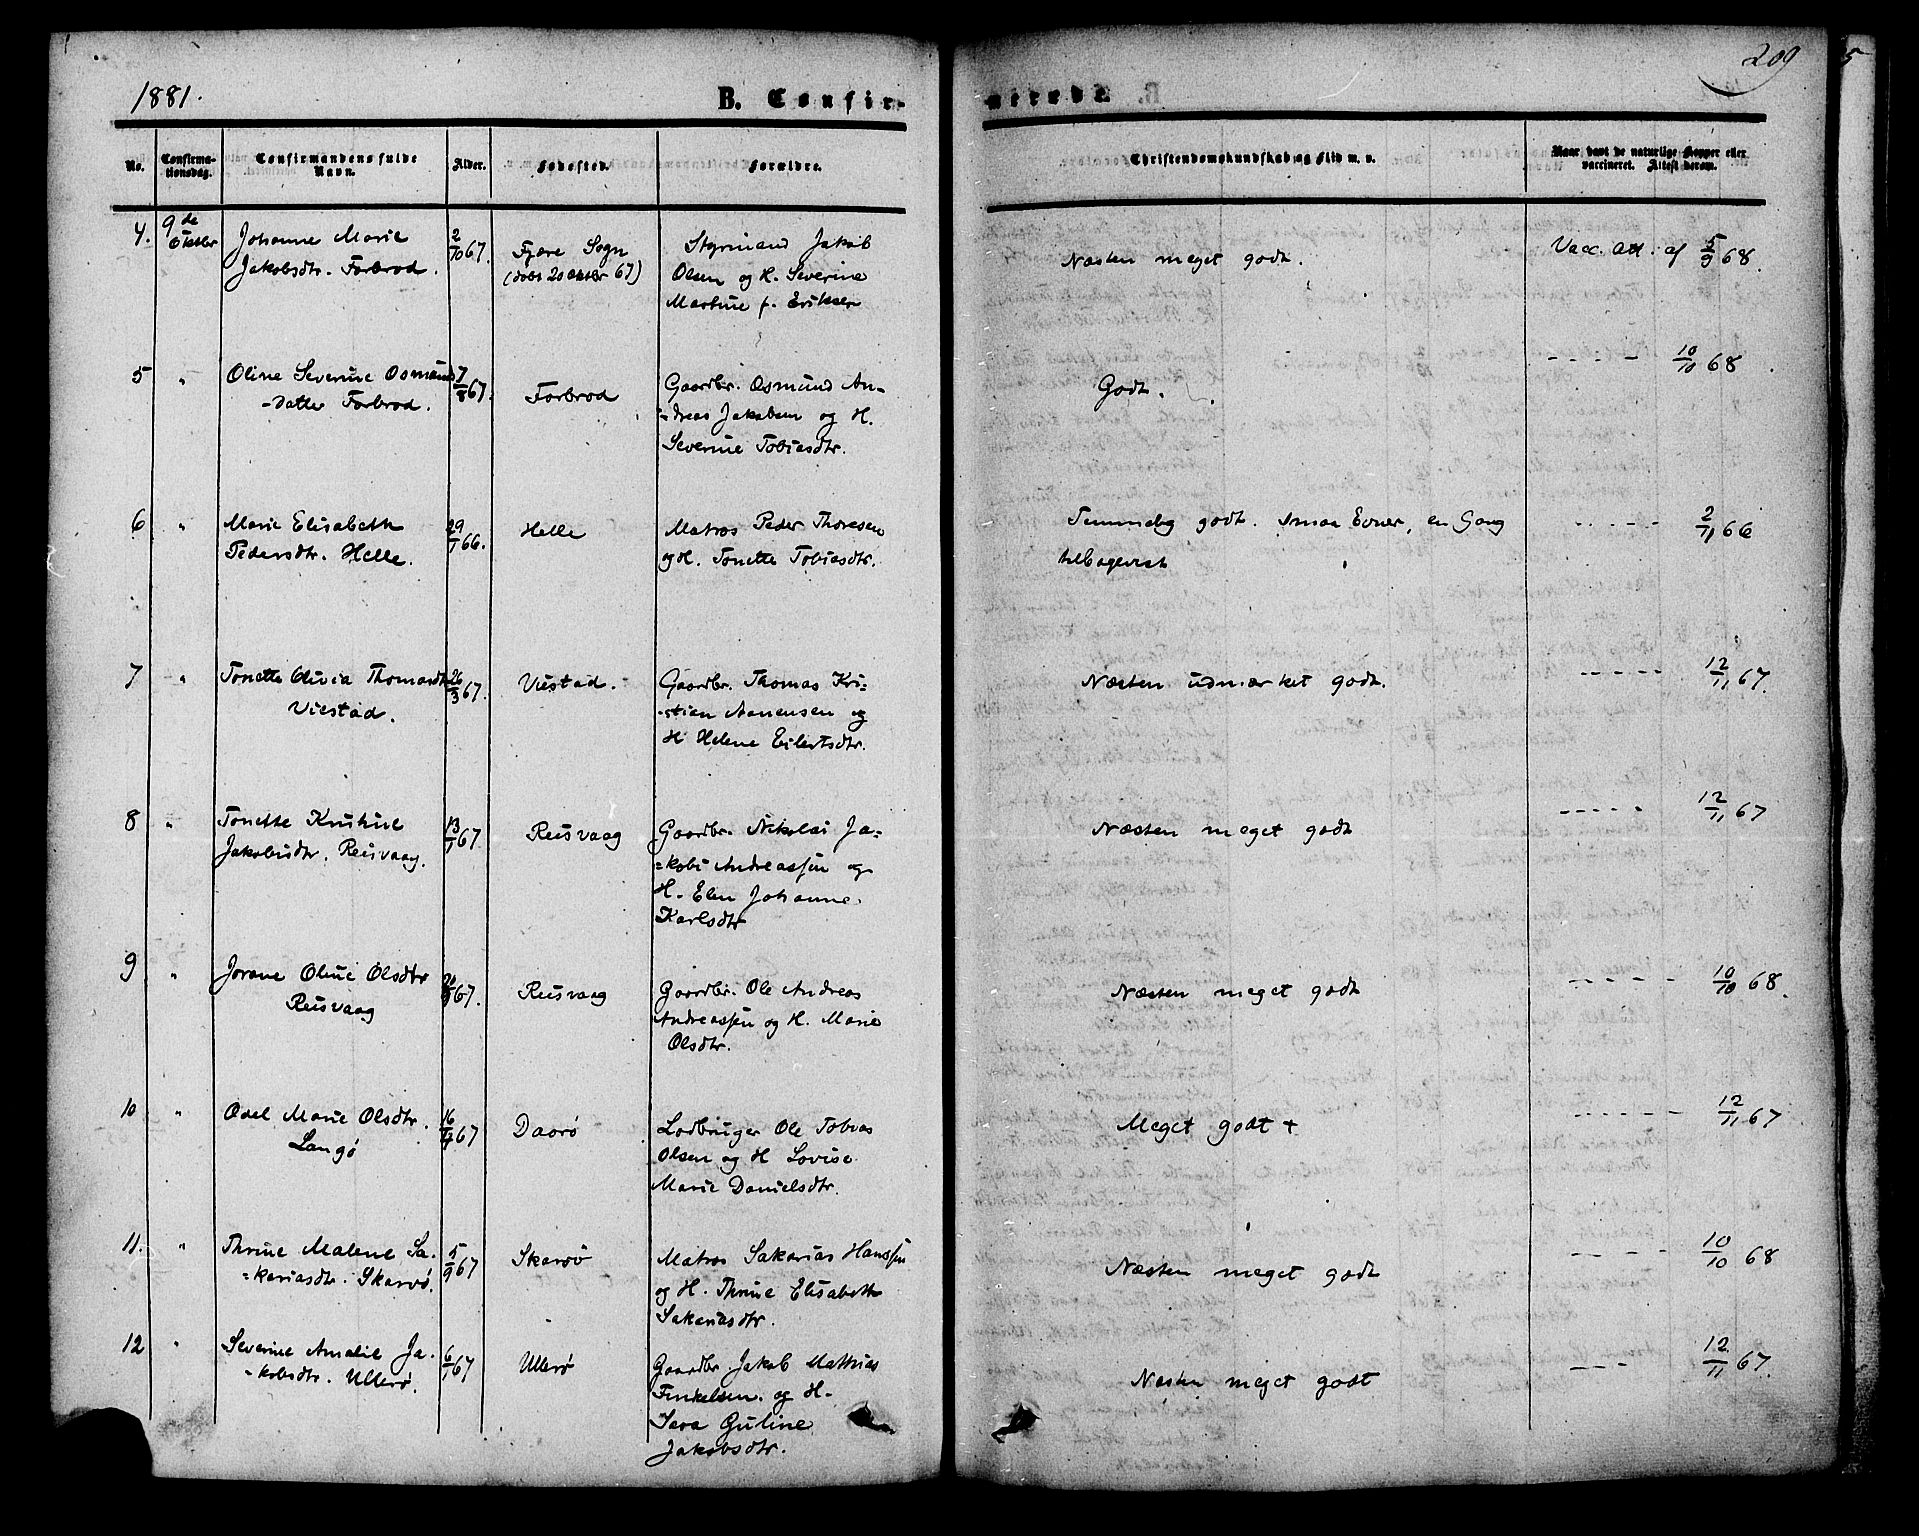 1881.
B. Confir-
merede.
209
No.
Confirma-
tionsdag.
Confirmandens fulde
Navn.
Alder.
Fødested.
Forældre.
Christendomskundskab og Flid m. v.
Naar havt de naturlige Kopper eller
vaccineret. Attest derom.
4. 9de Oktbr
Johanne Marie
Jakobsdtr. Forbrod.
2/10 67.
Fjære Sogn
(døbt 20 Oktbr 67)
Styrmand Jakob
Olsen og H. Severine
Martine f. Eriksen
Næsten meget godt.
Vacc. Att. af 5/9 68.
5 "
Oline Severine Osmunds
-datter Forbrod.
7/8 67.
Forbrod
Gaardbr. Osmund An-
-dreas Jakobsen og H.
Severine Tobiasdtr.
Godt.
- - - - - 10/10 68.
6 "
Marie Elisabeth
Pedersdtr. Helle.
29/1 66.
Helle
Matros Peder Thoresen
og H. Tonette Tobiasdtr.
Temmelig godt. smaa Evner, en Gang
tilbagevist
- - - - - 2/11 66
7 "
Tonette Olivia Thomasdtr
Viestad.
26/3 67.
Viestad.
Gaardbr. Thomas Kri-
-stian Aanensen og
H Helene Eilertsdtr.
Næsten udmærket godt.
- - - - - 12/11 67.
8 "
Tonette Kristine
Jakobisdtr. Reisvaag.
13/1 67.
Reisvaag
Gaardbr. Nikolai Ja-
-kobi Andreassen og
H. Elen Johanne
Karlsdtr
Næsten meget godt
- - - - - 12/11 67
9 "
Jorane Oline Olsdtr
Reisvaag
67.
Reisvaag
Gaardbr. Ole Andreas
Andreassen og H. Marie
Olsdtr.
Næsten meget godt
- - - - - 10/10 68.
10 "
Odel Marie Olsdtr.
Langø
16/4 67
Daarø
Lodbruger Ole Tobias
Olsen og H Lovise
Marie Danielsdtr.
Meget godt +
- - - - - 12/11 67
11. "
Thrine Malene Sa-
-kariasdtr. Skarvø.
5/9 67
Skarvø
Matros Sakarias Hanssen
og H. Thrine Elisabeth
Sakariasdtr.
Næsten meget godt
- - - - 10/10 68
12 "
Severine Amalie Ja-
-kobsdtr. Ullerø.
6/1 67
Ullerø
Gaardbr. Jakob Mathias
Finkelsen og H.
Sara Guline
Jakobsdtr.
Næsten meget godt
- - - 12/11 67.